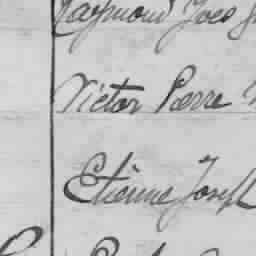 Raymond Yves
Victor Pierre
Etienne Joseph